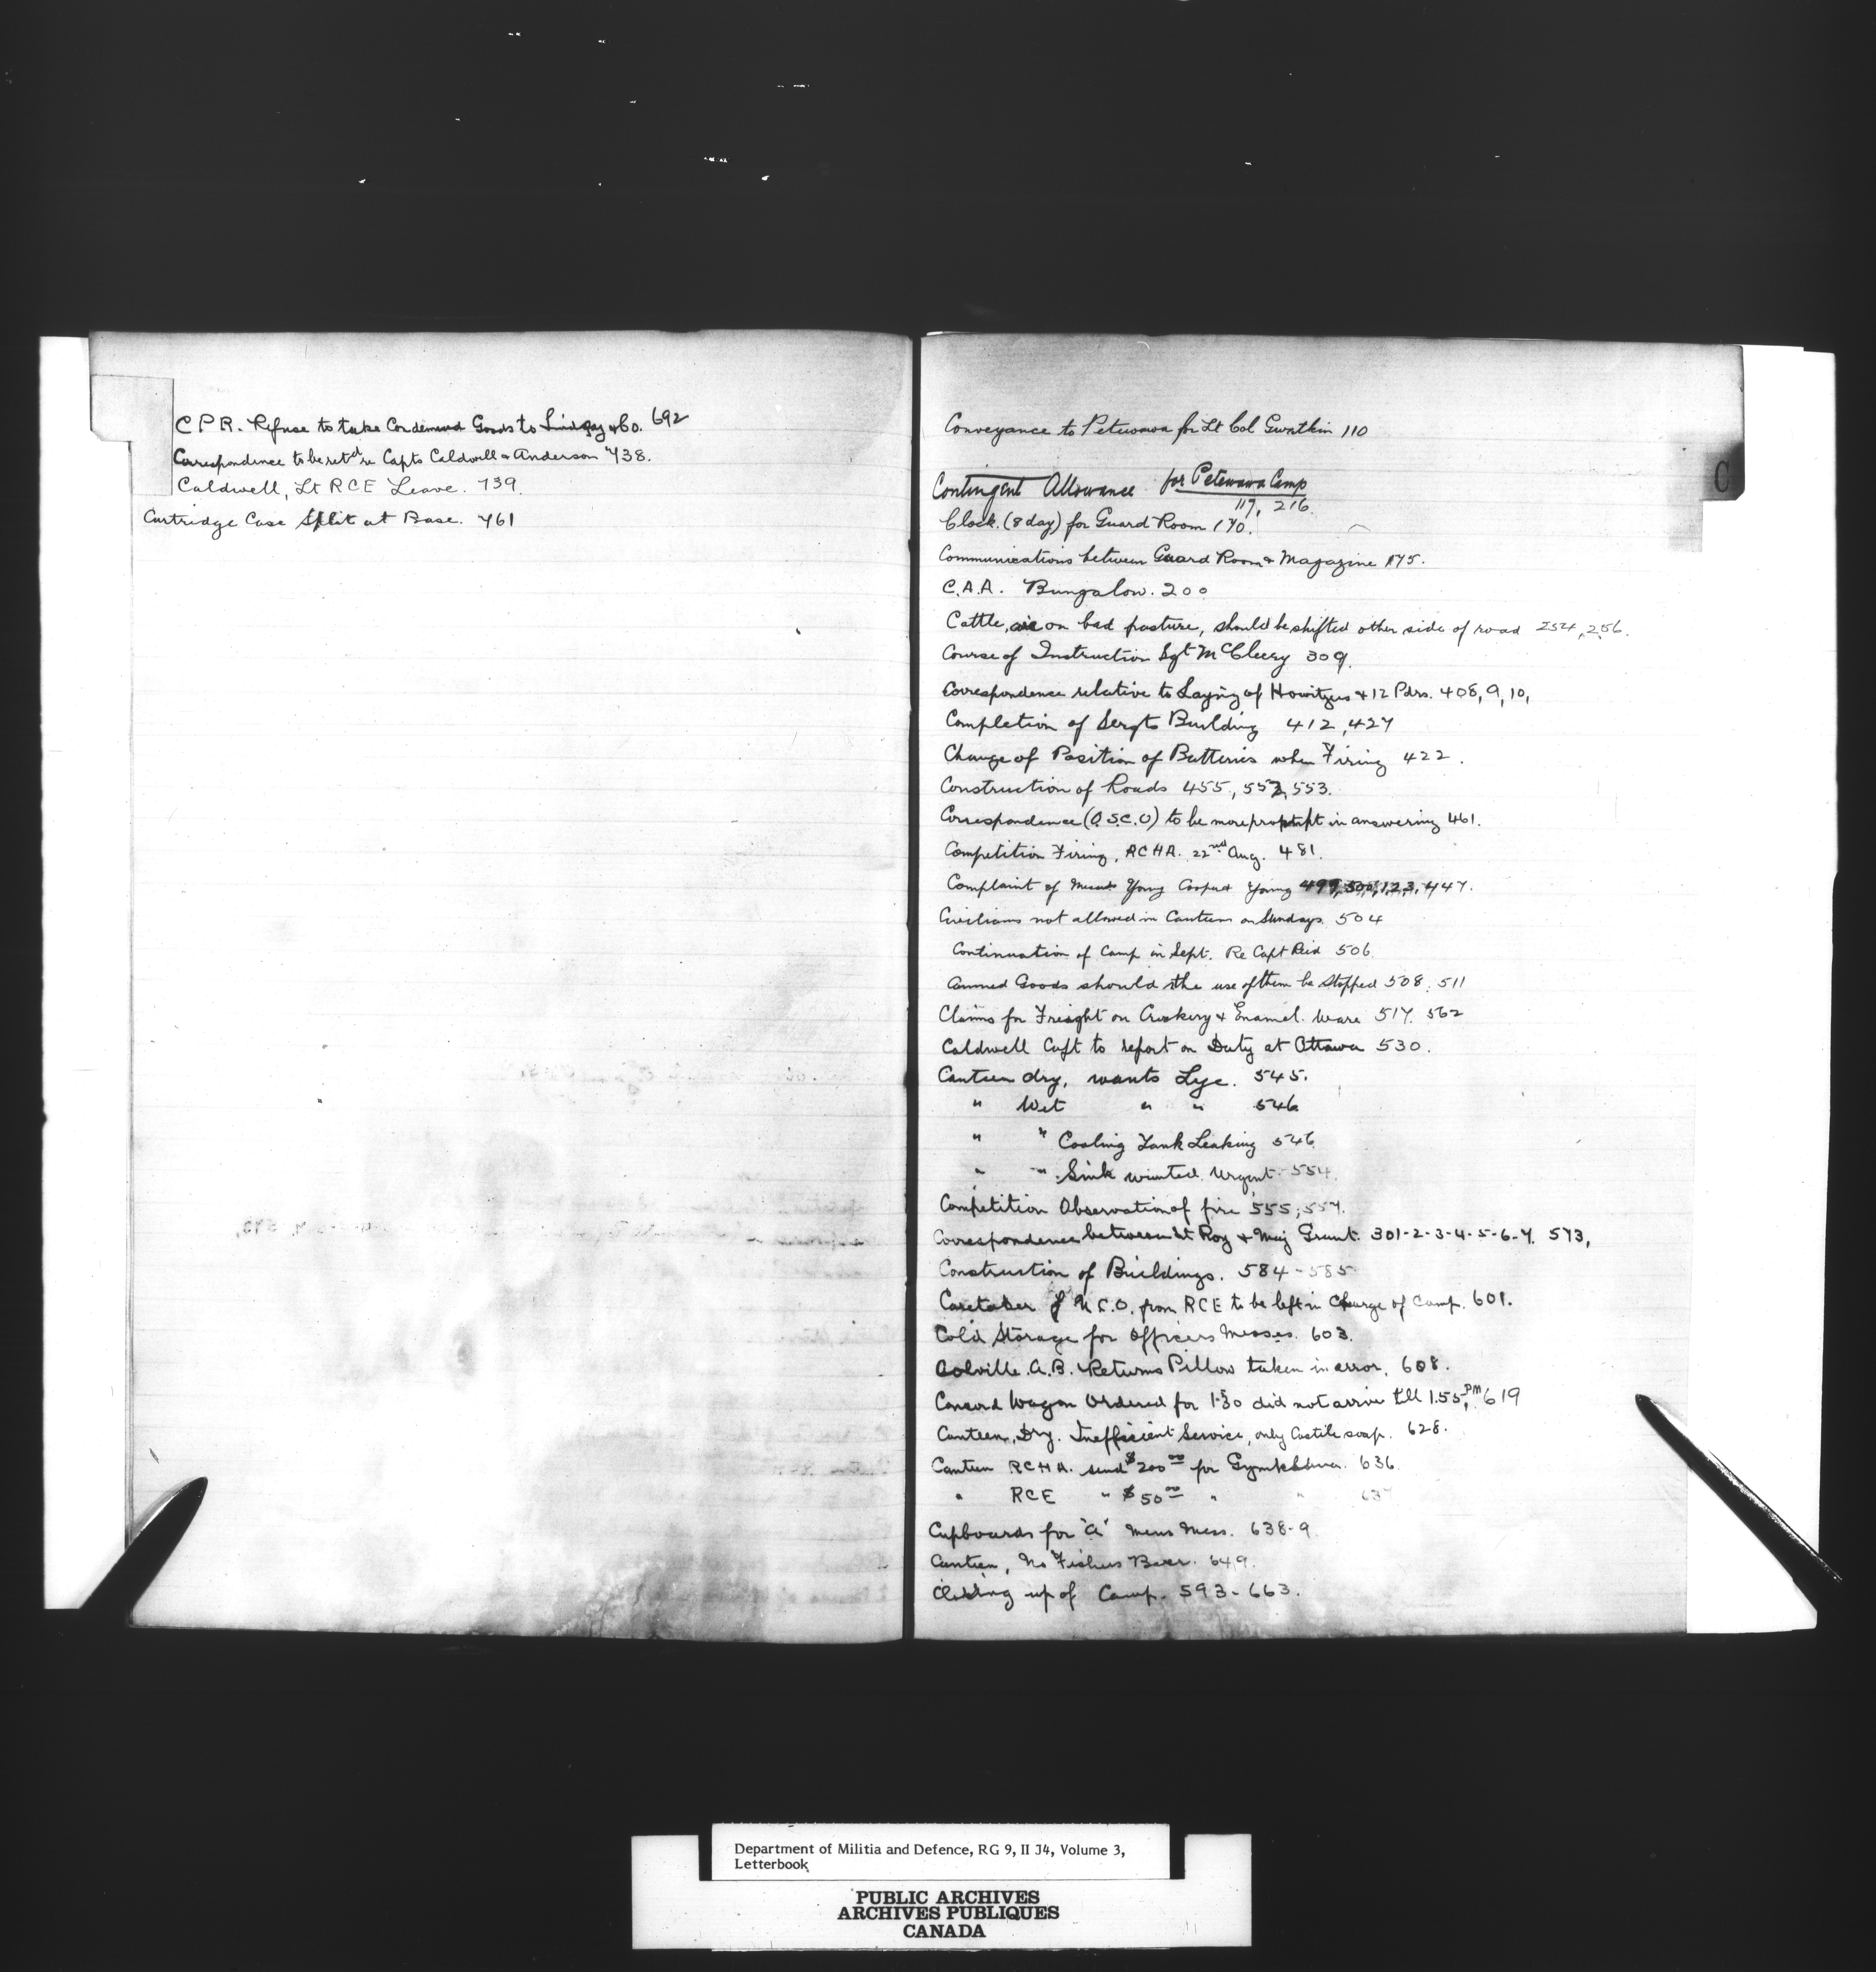 C P R. Refuse to take Condemned Goods to Lindsay &60. 692
Correspondence to be retd re Capts Caldwell & Anderson 738.
Caldwell, Lt RCE Leave. 739.
Cartridge Case Split at Base. 761
Conveyance to Petewawa for Lt Col Gwatkin 110
Contingent Allowance for Petewawa Camp
117, 216.
Clock. (8 day) for Guard Room 170.
Communications between Guard Room & Magazine 175.
C.A.A. Bungalow. 200
Cattle, on bad pasture, should be shifted other side of road 254, 256.
Course of Instruction Sgt McCleery 309.
Correspondence relative to Laying of Howitzers & 12 Pdrs. 408, 9, 10,
Completion of Sergts Building 412, 427
Change of Position of Batteries when Firing 422.
Construction of Roads 455, 552, 553.
Correspondence (O.S.C.O) to be more prompt in answering 461.
Competition Firing, RCHA. 22nd Aug. 481.
Complaint of Messrs Young Cooper & Young 499, 500, 1, 2, 3, 447.
Civilians not allowed in Canteens on Sundays. 504
Continuation of Camp in Sept. Re Capt Reid 506
Canned Goods should the use of them be Stopped 508. 511
Claims for Freight on Crockery & Enamel. Ware 517. 562
Caldwell Capt to report on Duty at Ottawa 530.
Canteen dry, wants Lye. 545.
" Wet " " 546
" " Cooling Tank Leaking 546
" " Sink wanted. Urgent. 554.
Competition Observation of fire 555, 557.
Correspondence between Lt Roy & Maj Grant. 301-2-3-4-5-6-7. 573,
Construction of Buildings. 584-585
Caretaker of N.C.O. from RCE to be left in Charge of Camp. 601.
Cold Storage for Officers Messes. 603.
Colville A.B. Returns Pillow taken in error. 608.
Concord Wagon Ordered for 1.30 did not arrive till 1.55 PM, 619
Canteen, Dry. Inefficient Service, only Castile soap. 628.
Canteen RCHA. send $200 00 for Gymkhana. 636
" RCE " $50 00 " " 637
Cupboards for "A" Mens Mess. 638-9
Canteen, No Fishers Beer. 649.
Closing up of Camp. 593-663.
C
Department of Militia and Defence, RG 9, II J4, Volume 3,
Letterbook
PUBLIC ARCHIVES
ARCHIVES PUBLIQUES
CANADA